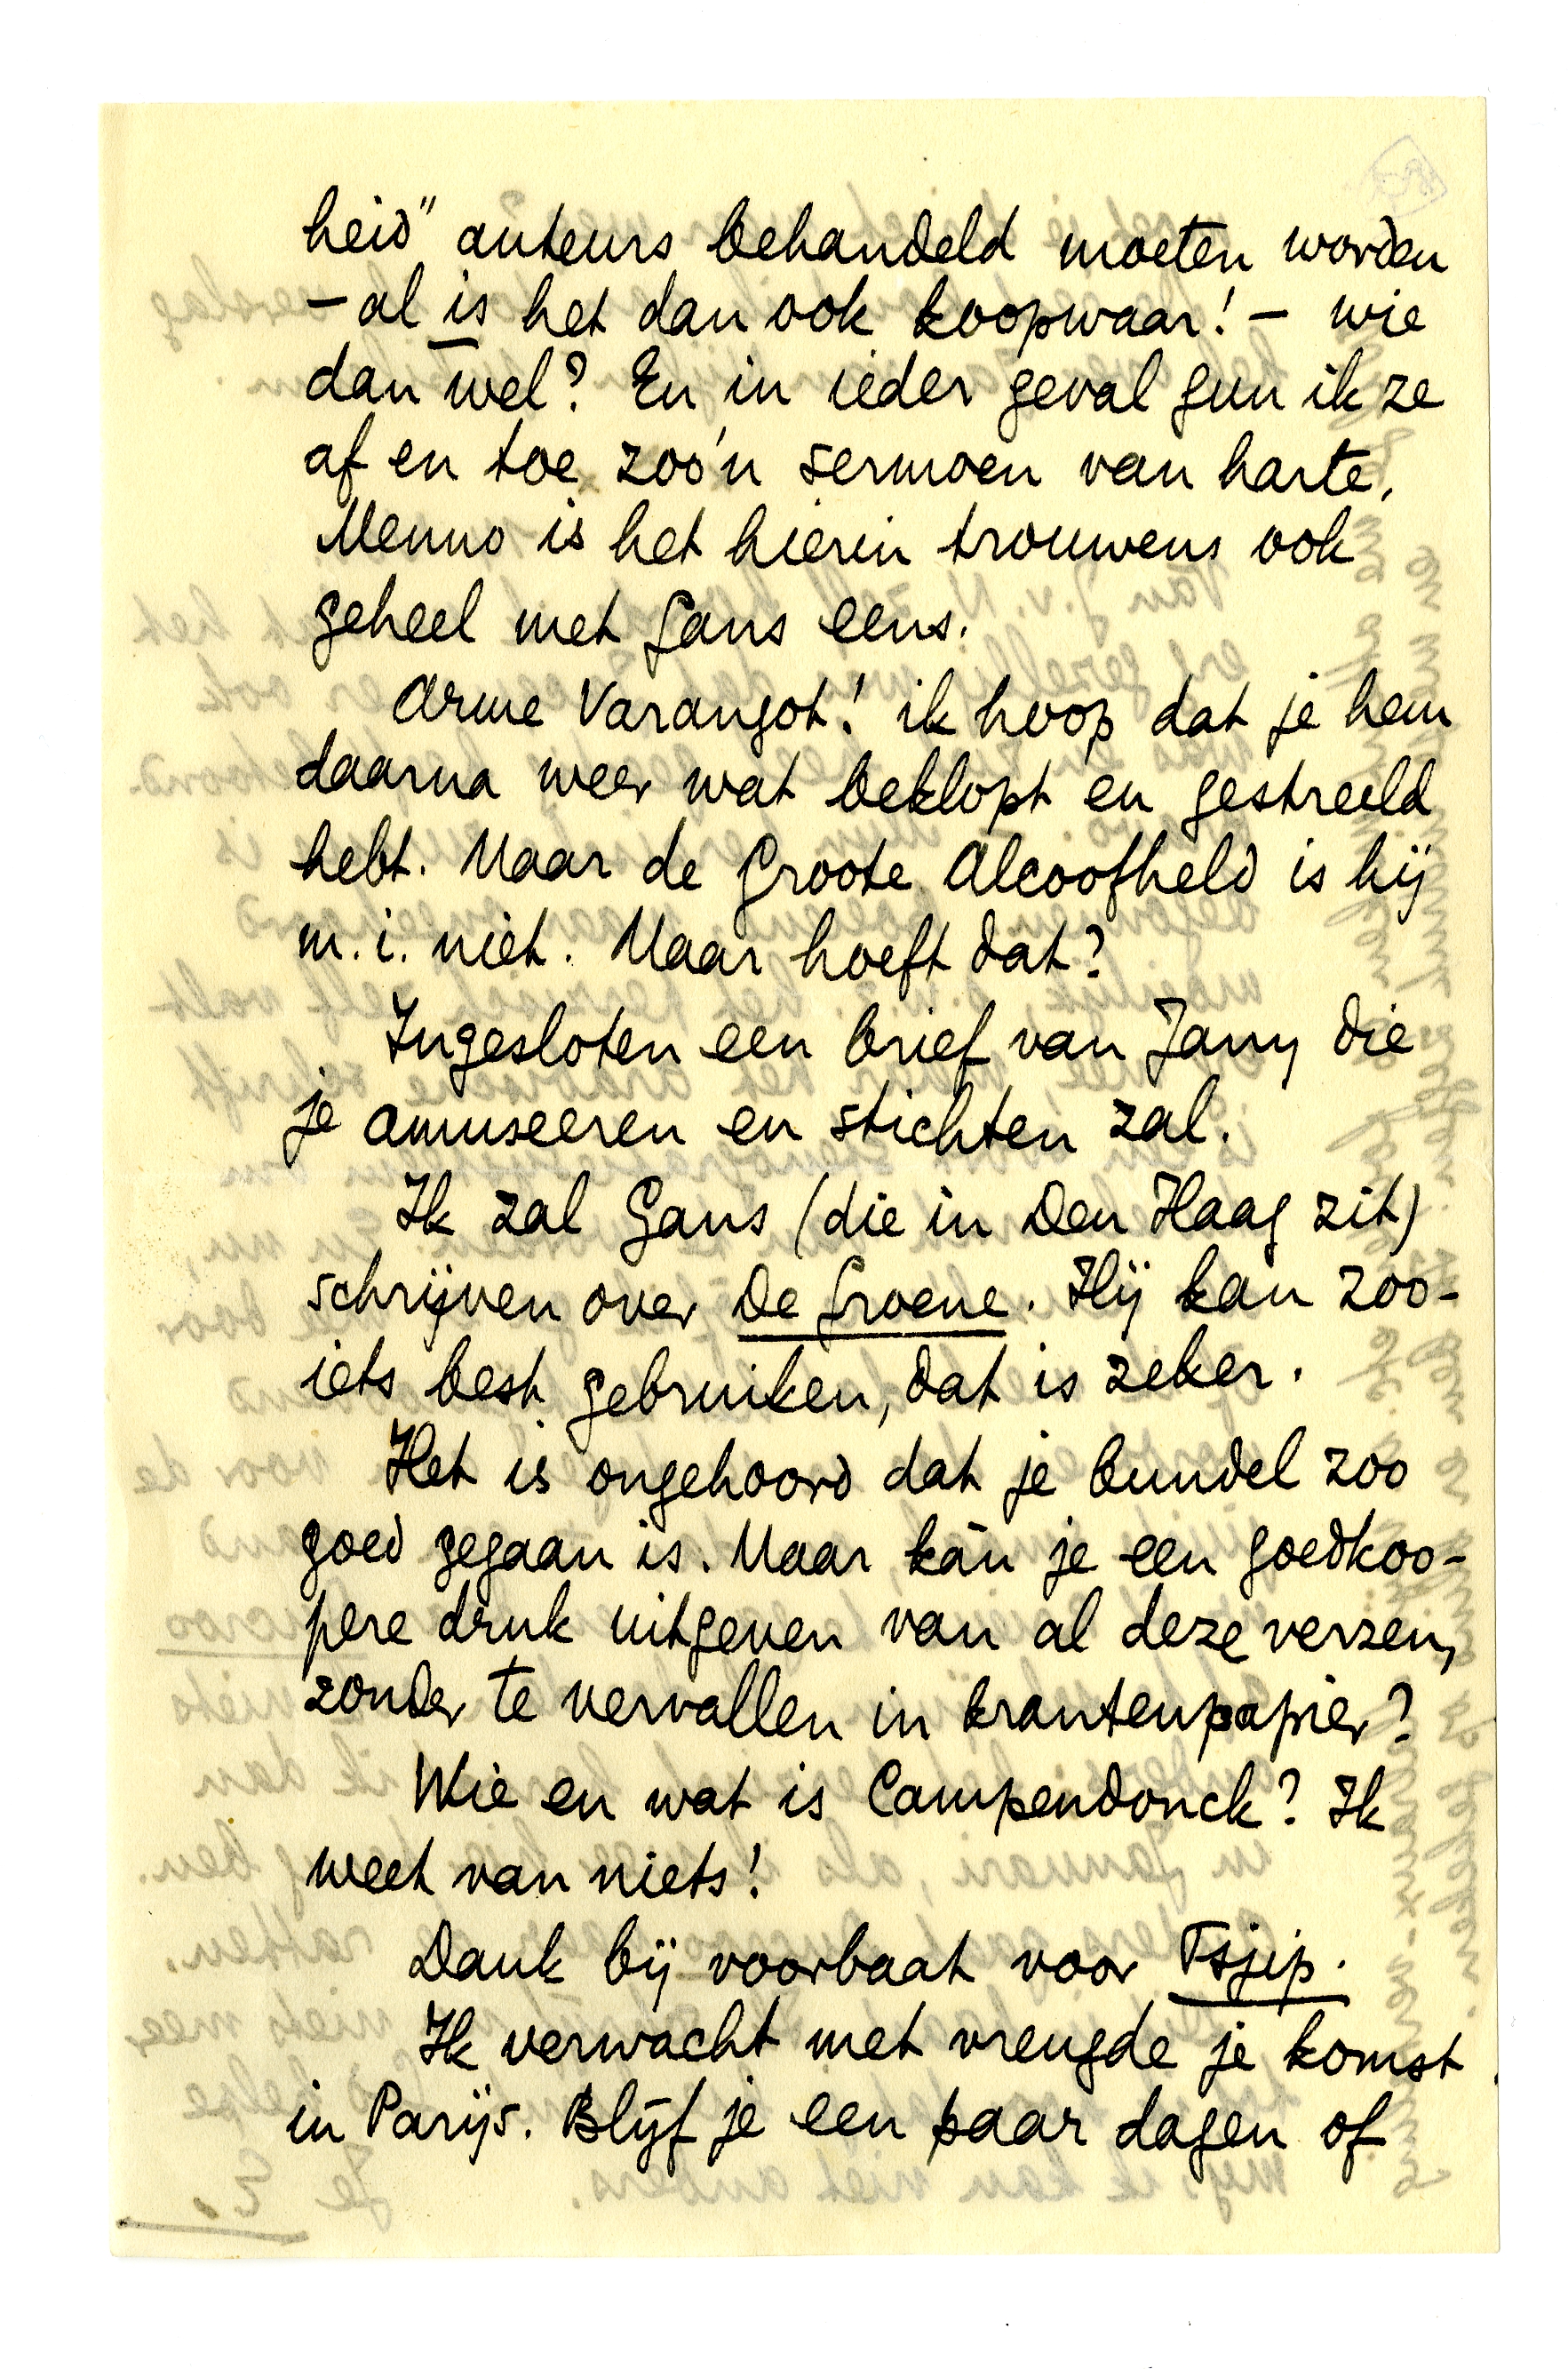 heid" auteurs behandeld moeten worden
– al is het dan ook koopwaar! – wie
dan wel? En in ieder geval gun ik ze
af en toe zoo'n sermoen van harte.
Menno is het hierin trouwens ook
geheel met Gans eens.
Arme Varangot! ik hoop dat je hem
daarna weer wat beklopt en gestreeld
hebt. Maar de Groote Alcoofheld is hij
m.i. niet. Maar hoeft dat?
Ingesloten een brief van Jany die
je amuseeren en stichten zal.
Ik zal Gans (die in Den Haag zit)
schrijven over De Groene. Hij kan zoo-
iets best gebruiken, dat is zeker.
Het is ongehoord dat je bundel zoo
goed gegaan is. Maar kàn je een goedkoo-
pere druk uitgeven van al deze verzen,
zonder te vervallen in krantenpapier?
Wie en wat is Campendonck? Ik
weet van niets!
Dank bij voorbaat voor Tsjip.
Ik verwacht met vreugde je komst
in Parijs. Blijf je een paar dagen of